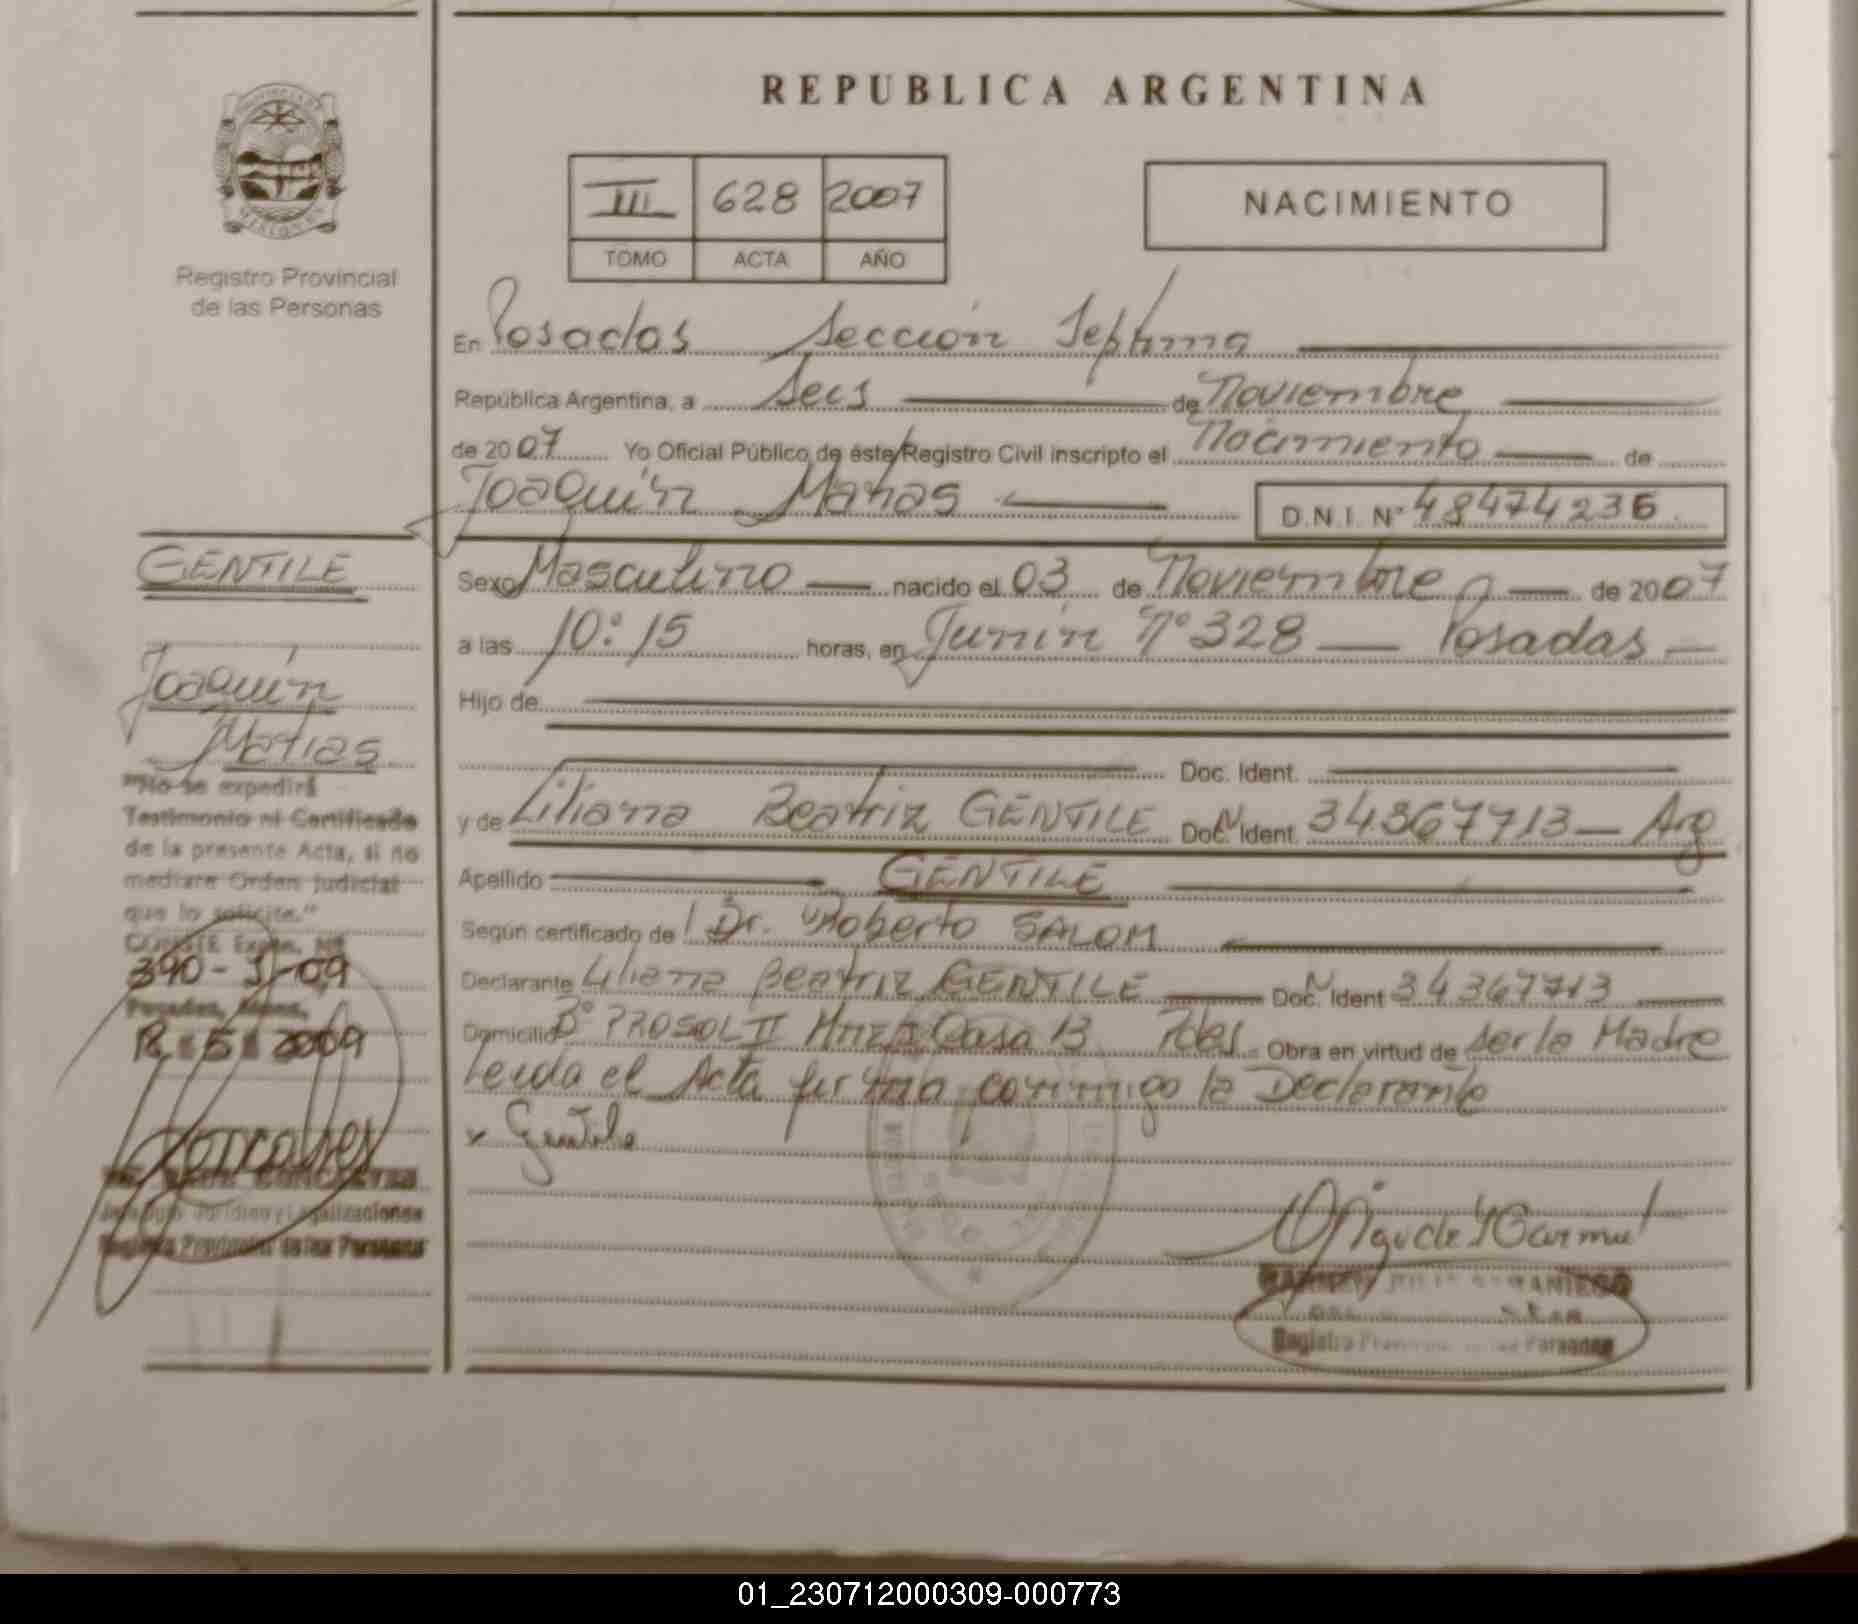 REPUBLICA ARGENTINA
III 628 2007
TOMO ACTA AÑO
NACIMIENTO
Registro Provincial
de las Personas
En Posadas Sección Septima
República Argentina, a Seis de Noviembre
de 2007 Yo Oficial Público de éste Registro Civil inscripto el Nacimiento de
Joaquín Matias D.N.I. N° 48474236
Sexo Masculino nacido el 03 de Noviembre de 2007
a las 10:15 horas, en Junín N° 328 Posadas
Hijo de
Doc. Ident.
y de Liliana Beatriz GENTILE Doc. Ident. 34367713 Arg
Apellido GENTILE
Según certificado de Dr. Roberto SALOM
Declarante Liliana Beatriz GENTILE Doc. Ident 34367713
Domicilio B° PROSOL II Casa 13 Pdas. Obra en virtud de ser la Madre
Leida el Acta firma conmigo la Declarante
x Gentile
GENTILE
Joaquín
Matias
"No se expedirá
Testimonio ni Certificado
de la presente Acta, si no
mediare Orden Judicial
que lo solicite."
CONSTE Expte. Nº
390-J-09
Posadas, Mnes,
5 2009
Jurídico y Legalizaciones
Registro Provincial de las Personas
Registro Provincial de las Personas
01_230712000309-000773